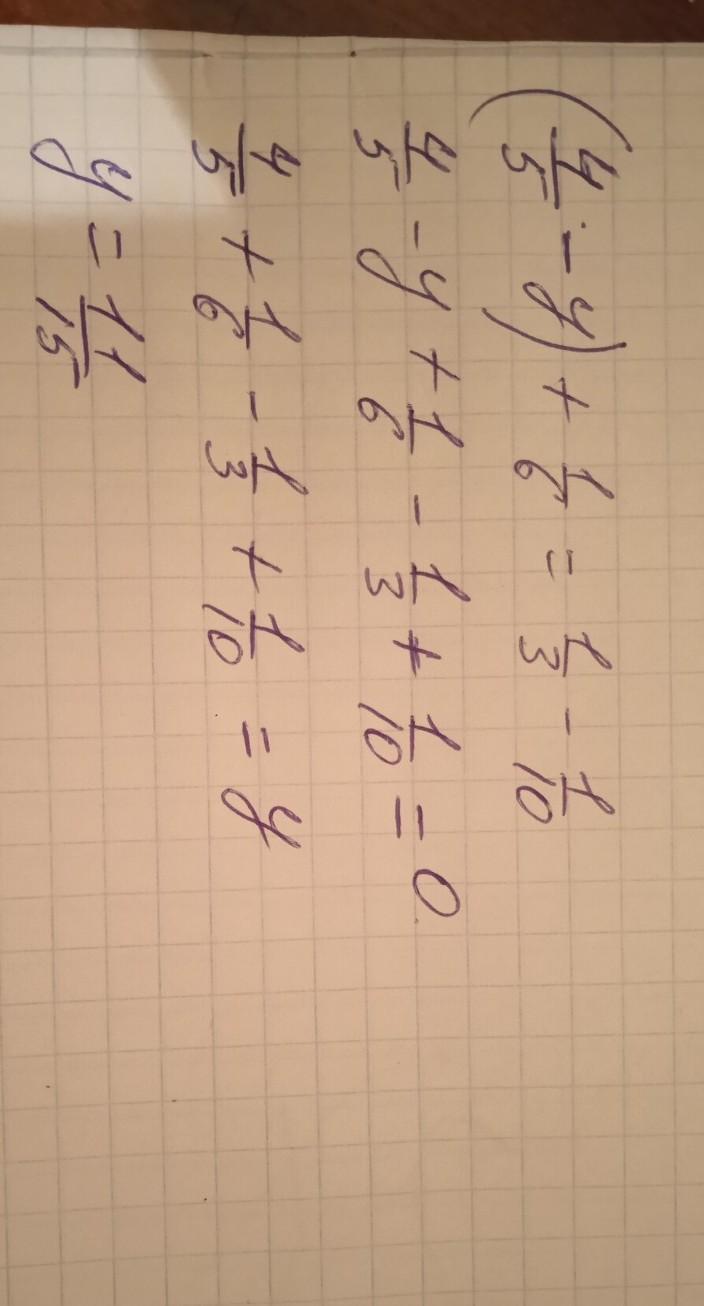 (4/5 - y) + 1/6 = 1/3 - 1/10
4/5 - y + 1/6 - 1/3 + 1/10 = 0
4/5 + 1/6 - 1/3 + 1/10 = y
y = 11/15